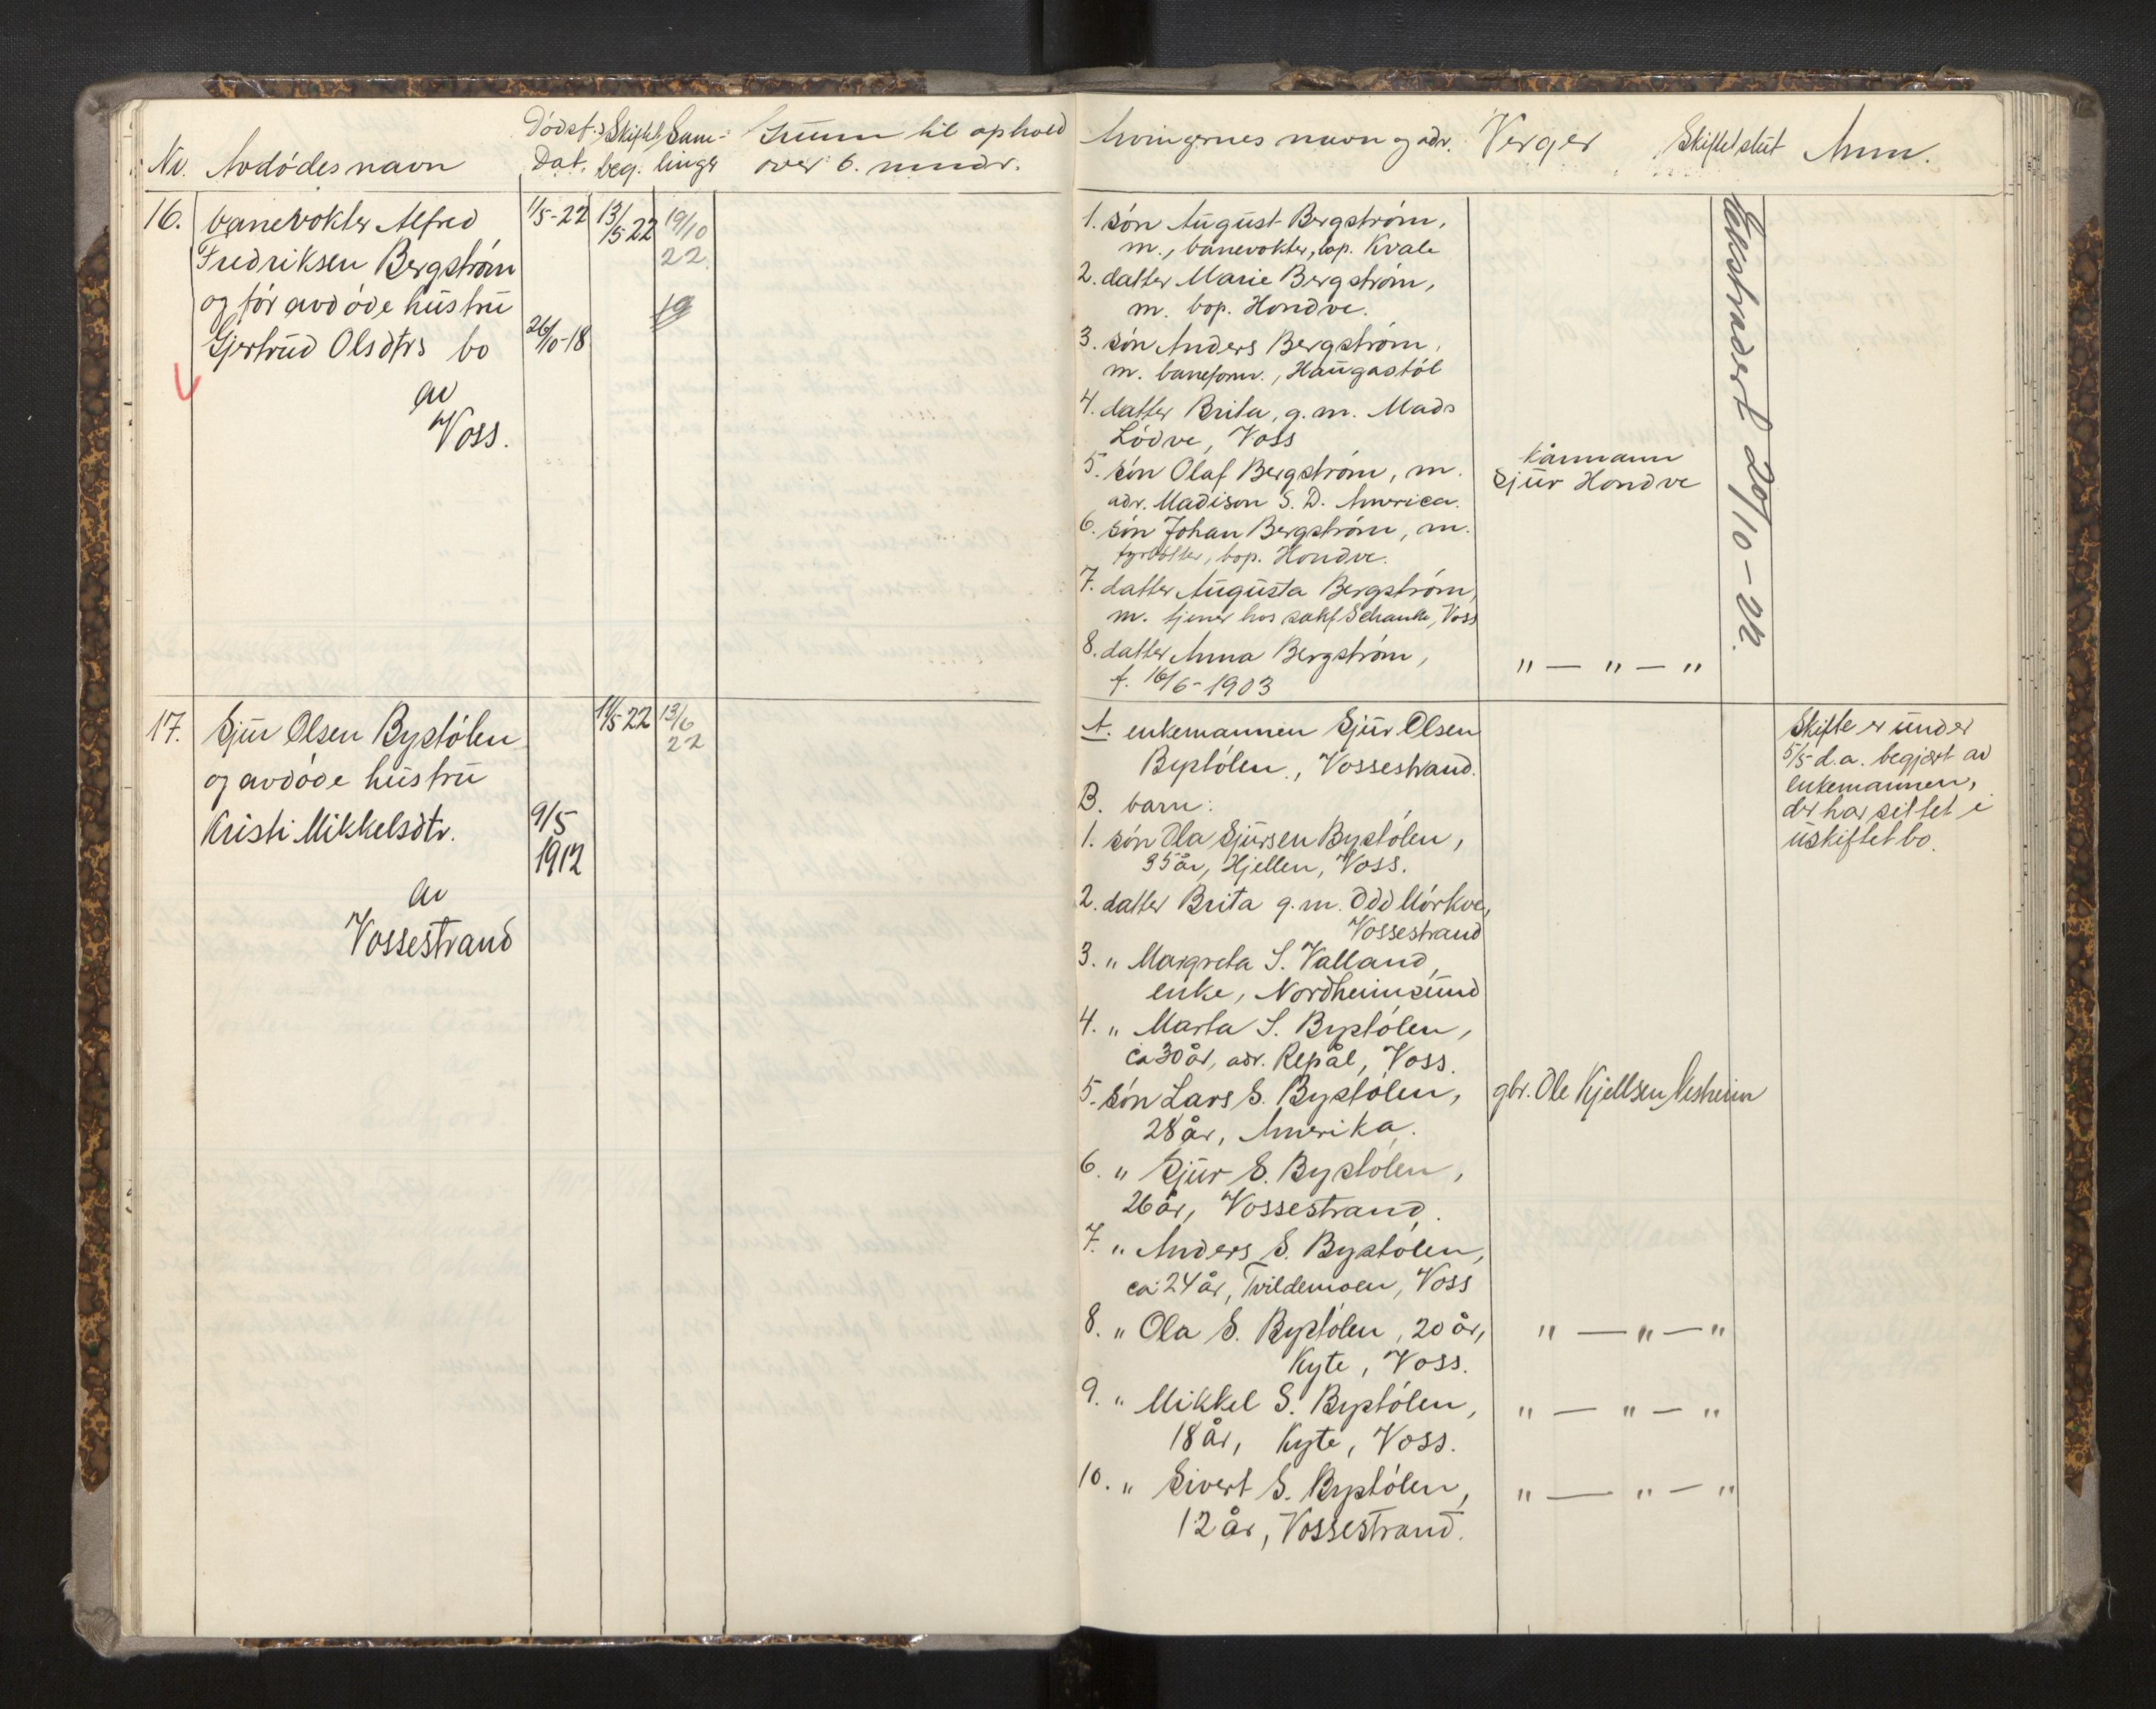 Nr. Avdødes navn Dødsf. Dat. Skiftet beg. Sam- linger Grunn til ophold over 6. mndr.
Arvingernes navn og adr. Verger Skiftet slut Anm.
16. banevokter Alfred 11/5-22 13/5 22 19/10 22
Fredriksen Bergstrøm
og før avdøde hustru 19
Gjertrud Olsdtrs bo 26/10-18
av
Voss.
1. søn August Bergstrøm,
m., banevokter, bop. Kvale
2. datter Marie Bergstrøm,
m. bop. Hondve.
3. søn Anders Bergstrøm,
m. baneform., Haugastøl
4. datter Brita, g.m. Mads
Lødve, Voss
5. søn Olaf Bergstrøm, m.
adr. Madison S. D. America.
kårmann
Sjur Hondve
6. søn Johan Bergstrøm, m.
fyrbøtter, bop. Hondve.
7. datter Augusta Bergstrøm,
m. tjener hos sakf. Schanke, Voss
8. datter Anna Bergstrøm, " — " — "
f. 16/6-1903
Ekstradert 20/10-22.
17. Sjur Olsen Bystølen 11/5 22 13/6 22
og avdøde hustru
Kristi Mikkelsdtr. 9/5
1912
av
Vossestrand
A. enkemannen Sjur Olsen
Bystølen, Vossestrand.
B. barn:
1. søn Ola Sjursen Bystølen,
35 år, Hjellen, Voss.
2. datter Brita g.m. Odd Mørkve,
Vossestrand
3. " Margreta S. Valland,
enke, Nordheimsund
4. " Marta S. Bystølen,
ca 30 år, adr. Repål, Voss.
5. søn Lars S. Bystølen, gbr. Ole Kjellsen Nesheim
28 år, Amerika.
6. " Sjur S. Bystølen,
26 år, Vossestrand.
7. " Anders S. Bystølen,
ca 24 år, Tvildemoen, Voss
8. " Ola S. Bystølen, 20 år, " — " — "
Kyte, Voss.
9. " Mikkel S. Bystølen, " — " — "
18 år, Kyte, Voss.
10. " Sivert S. Bystølen, " — " — "
12 år, Vossestrand.
Skifte er under
5/5 d.a. begjært av
enkemannen,
der har sittet i
uskiftet bo.